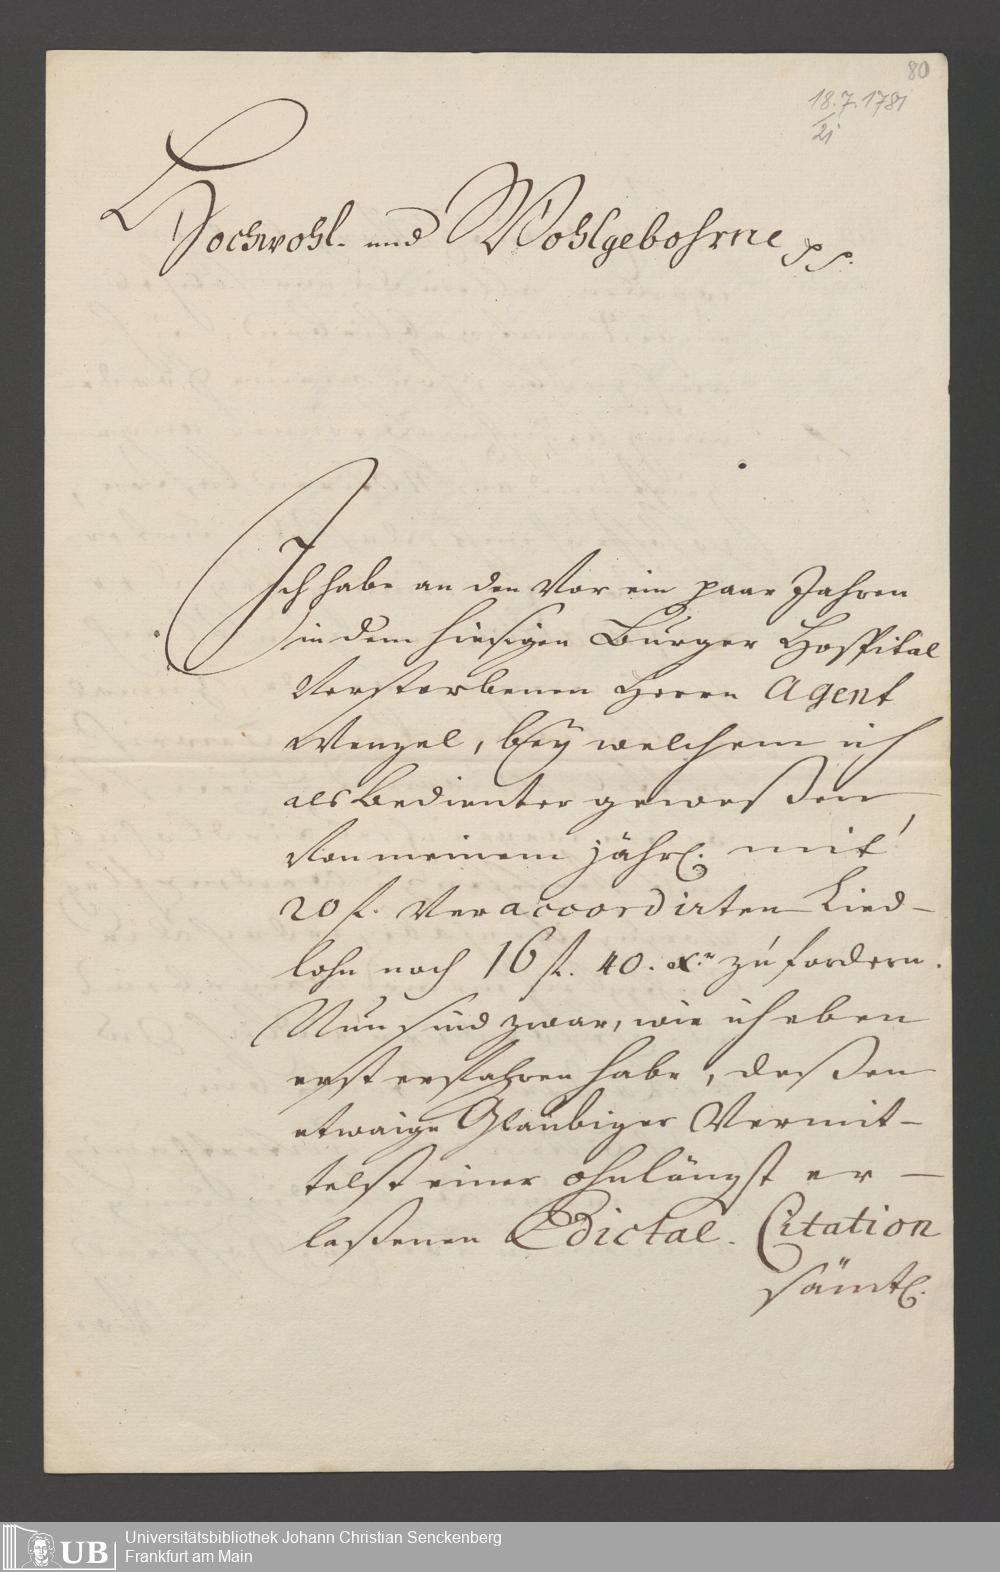 80
18.7.1781
21
Hochwohl- und Wohlgebohrne pp.
Ich habe an den Vor ein paar Jahren
in dem hiesigen Bürger Hospital
Verstorbenen Herrn Agent
Wenzel, beÿ welchem ich
als Bedienter geweßen
Von meinem jährl. mit
20 f. Veraccordirten Lied-
lohn noch 16 f. 40. xr zu fordern.
Nun sind zwar, wie ich eben
erst erfahren habe, deßen
etwaige Glaubiger Vermit-
telst einer ohnlängst er-
laßenen Edictal-Citation
sämtl.
UB
Universitätsbibliothek Johann Christian Senckenberg
Frankfurt am Main